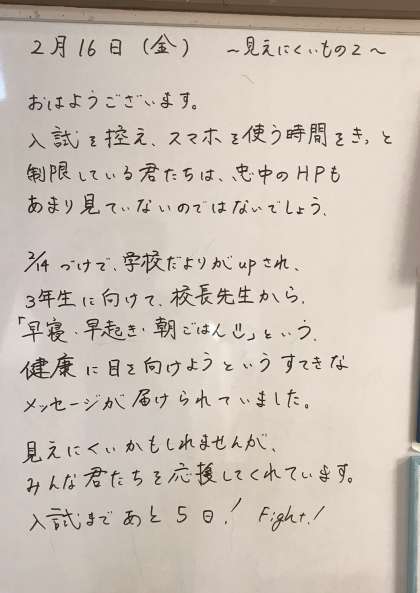 2月16日(金) ~見えにくいもの2~
おはようございます。
入試を控え、スマホを使う時間をきっと
制限している君たちは、忠中のHPも
あまり見ていないのではないでしょう、
2/14 づけで、学校だよりがupされ、
3年生に向けて、校長先生から、
「早寝・早起き・朝ごはん」という、
健康に目を向けようというすてきな
メッセージが届けられていました。
見えにくいかもしれませんが、
みんな君たちを応援してくれています。
入試まであと5日! Fight!